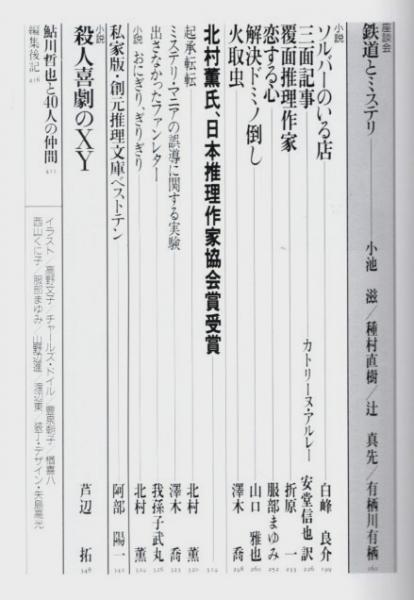 座談会
鉄道とミステリ 小池 滋/種村直樹/辻 真先/有栖川有栖
小説
ソルバーのいる店 白峰 良介 199
三面記事 カトリーヌ・アルレー 安堂信也 訳 226
覆面推理作家 折原 一
恋する心 服部まゆみ 252
解決ドミノ倒し 山口 雅也
火取虫 澤木 喬
北村薫氏、日本推理作家協会賞受賞
起承転転 北村 薫 120
ミステリ・マニアの誤導に関する実験 澤木 喬
出さなかったファンレター 我孫子武丸
小説
おにぎり、ぎりぎり 北村 薫
私家版・創元推理文庫ベストテン 阿部 陽一
小説
殺人喜劇のXY 芦辺 拓
鮎川哲也と40人の仲間
編集後記
イラスト/高野文子/チャールズ・ドイル/豊泉朝子/楢喜八
西山くに子/服部まゆみ/山野辺進/渡辺東/装丁・デザイン・矢島高光